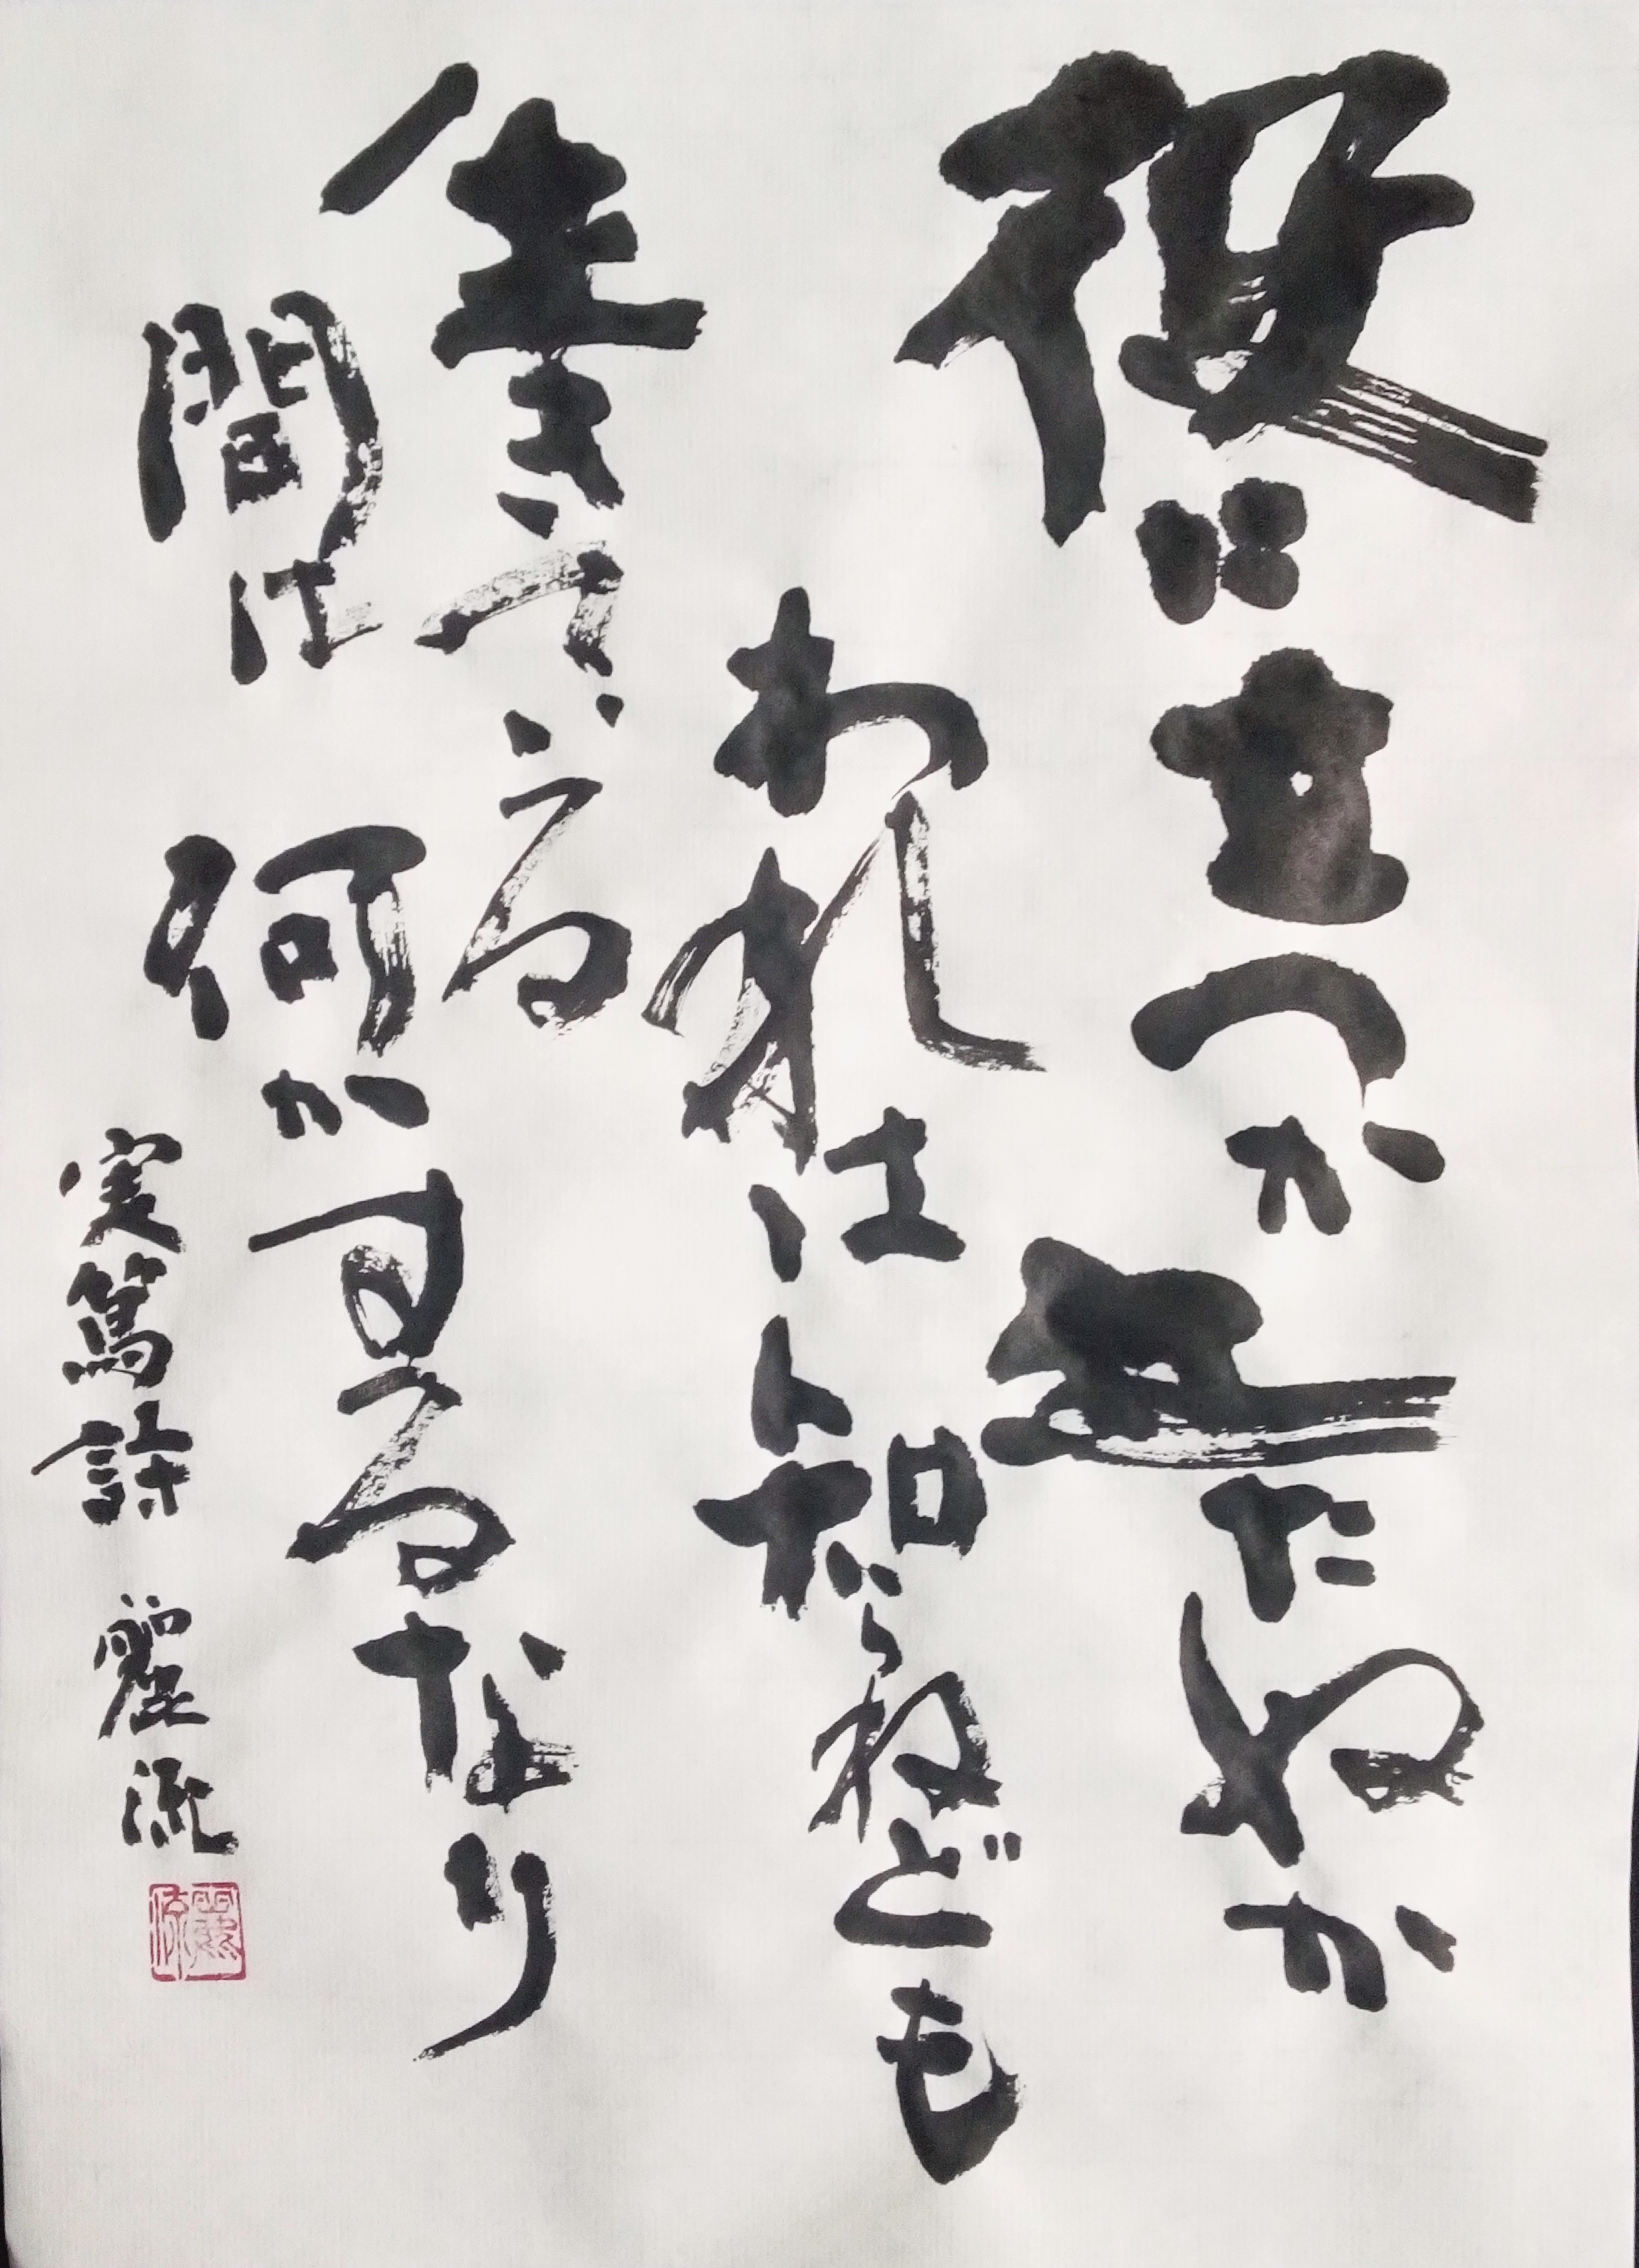 役にたつか無だめか
われは知らねども
生きている
間は何かするなり
実篤詩 麗流